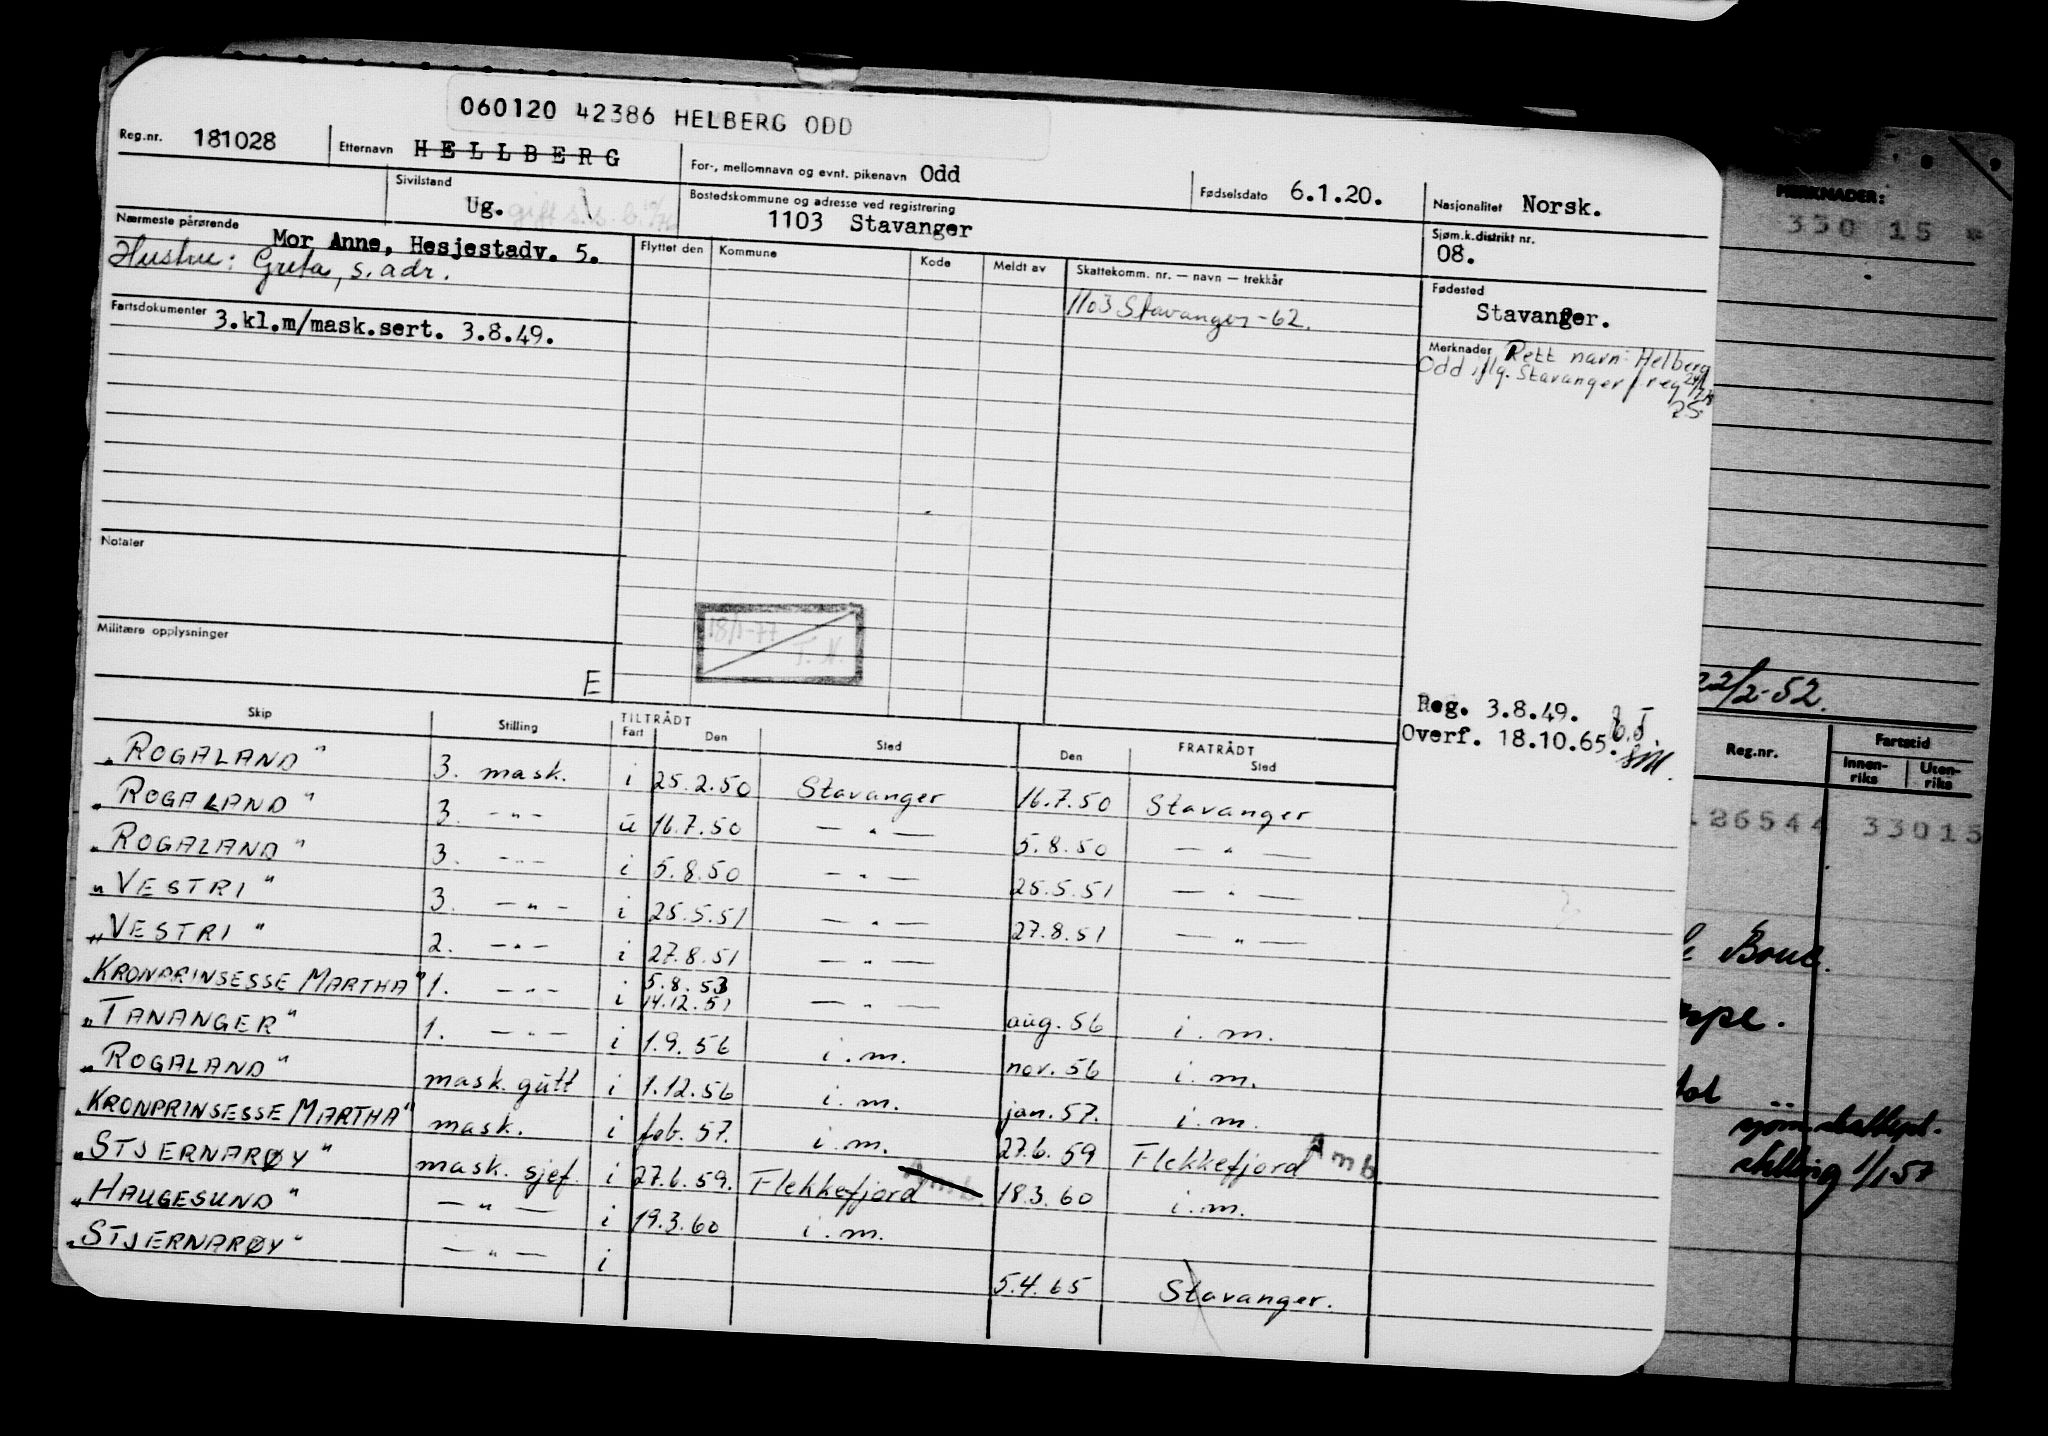 060120 42386 HELBERG ODD
Reg.nr. 181028 Etternavn HELLBERG For-, mellomnavn og evnt. pikenavn Odd Fødselsdato 6.1.20. Nasjonalitet Norsk.
Sivilstand Ug. gift Bostedskommune og adresse ved registrering 1103 Stavanger Sjøm.k.distrikt nr. 08.
Nærmeste pårørende Mor Anne, Hesjestadv. 5.
Hustru: Greta, s. adr.
Flyttet den Kommune Kode Meldt av Skattekomm. nr. — navn — trekkår
1103 Stavanger - 62.
Fødested Stavanger.
Fartsdokumenter 3.kl.m/mask.sert. 3.8.49.
Merknader Rett navn: Helberg
Odd iflg. Stavanger f.reg
Notater
18/1-77
T. N.
Militære opplysninger
E
Reg. 3.8.49.
Overf. 18.10.65.
Skip Stilling TILTRÅDT Fart Den Sted FRATRÅDT Den Sted
"ROGALAND" 3. mask. i 25.2.50 Stavanger 16.7.50 Stavanger
"ROGALAND" 3. — " — u 16.7.50 — " — 5.8.50 — " —
"ROGALAND" 3. — " — i 5.8.50 — " — 25.5.51 — " —
"VESTRI" 3. — " — i 25.5.51 — " — 27.8.51 — " —
"VESTRI" 2. — " — i 27.8.51 — " —
"KRONPRINSESSE MARTHA" 1. — " — i 5.8.53 14.12.51 — " — aug. 56 i. m.
"TANANGER" 1. — " — i 1.9.56 i. m. nov. 56 i. m.
"ROGALAND" mask. gutt i 1.12.56 i. m. jan. 57. i. m.
"KRONPRINSESSE MARTHA" mask. i feb. 57. i. m. 27.6.59 Flekkefjord Amb
"STJERNARØY" mask. sjef. i 27.6.59. Flekkefjord 18.3.60 i. m.
"HAUGESUND" — " — i 19.3.60 i. m.
"STJERNARØY" — " — i 5.4.65 Stavanger.
MERKNADER:
330 15
22/2-52.
Reg.nr. Fartstid
Innen-riks Uten-riks
126544 33015
Boue.
1/1 57